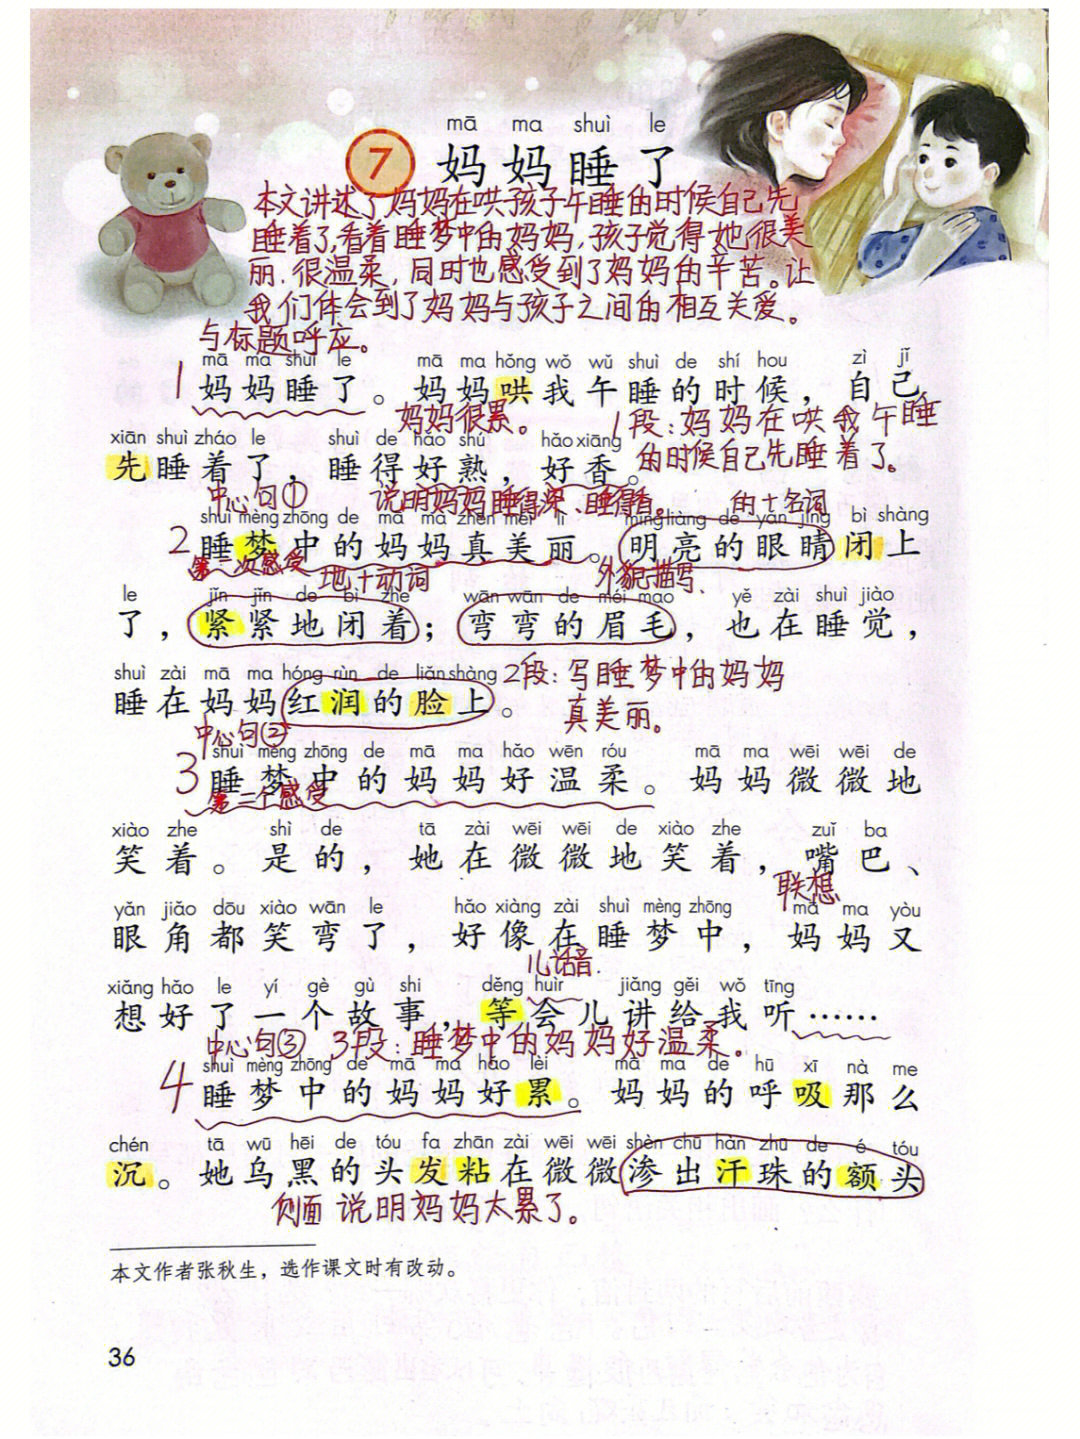 mā ma shuì le
7 妈妈睡了
本文讲述了妈妈在哄孩子午睡的时候自己先
睡着了,看着睡梦中的妈妈,孩子觉得她很美
丽.很温柔,同时也感受到了妈妈的辛苦。让
我们体会到了妈妈与孩子之间的相互关爱。
与标题呼应。
mā ma shuì le mā ma hǒng wǒ wǔ shuì de shí hou zì jǐ
1 妈妈睡了。妈妈哄我午睡的时候，自己
妈妈很累。
1段:妈妈在哄我午睡
的时候自己先睡着了。
xiān shuì zháo le shuì de hǎo shú hǎo xiāng
先睡着了，睡得好熟，好香。
中心句① 说明妈妈睡得深、睡得香。 的+名词
shuì mèng zhōng de mā ma zhēn měi lì míng liàng de yǎn jīng bì shàng
2 睡梦中的妈妈真美丽。明亮的眼睛闭上
第一次感受 地+动词 外貌描写、
le jǐn jǐn de bì zhe wān wān de méi mao yě zài shuì jiào
了，紧紧地闭着；弯弯的眉毛，也在睡觉，
shuì zài mā ma hóng rùn de liǎn shàng
睡在妈妈红润的脸上。
2段:写睡梦中的妈妈
真美丽。
中心句②
shuì mèng zhōng de mā ma hǎo wēn róu mā ma wēi wēi de
3 睡梦中的妈妈好温柔。妈妈微微地
第二个感受
xiào zhe shì de tā zài wēi wēi de xiào zhe zuǐ ba
笑着。是的，她在微微地笑着，嘴巴、
联想
yǎn jiǎo dōu xiào wān le hǎo xiàng zài shuì mèng zhōng mā ma yòu
眼角都笑弯了，好像在睡梦中，妈妈又
儿话音.
xiǎng hǎo le yí gè gù shi děng huìr jiǎng gěi wǒ tīng
想好了一个故事，等会儿讲给我听……
中心句③ 3段:睡梦中的妈妈好温柔.
shuì mèng zhōng de mā ma hǎo lèi mā ma de hū xī nà me
4 睡梦中的妈妈好累。妈妈的呼吸那么
chén tā wū hēi de tóu fa zhān zài wēi wēi shèn chū hàn zhū de é tóu
沉。她乌黑的头发粘在微微渗出汗珠的额头
侧面说明妈妈太累了。
本文作者张秋生，选作课文时有改动。
36